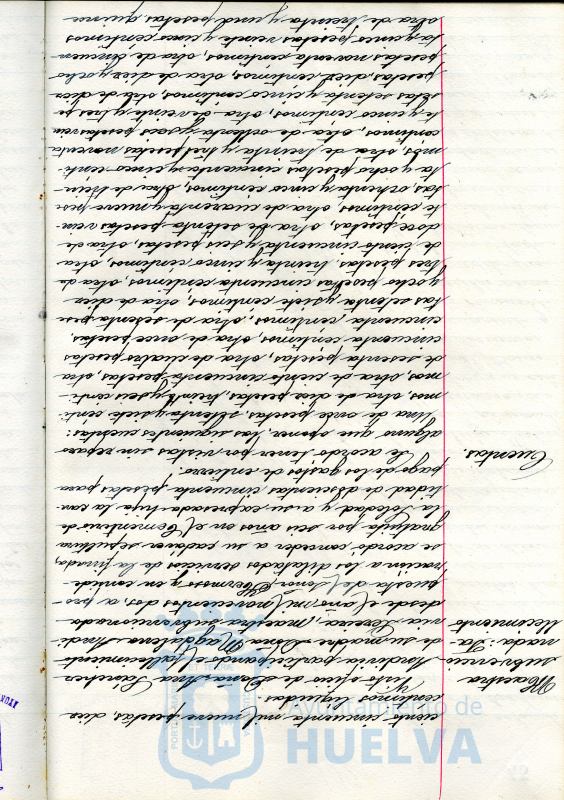 ciento cincuenta mil nueve pesetas, diez
céntimos líquidos.
Maestra
subvencio-
nada: Fa-
llecimiento
Visto oficio de Doña Ana Sánchez
Mondaria participando el fallecimiento
de su madre Doña Magdalena Mondaria
Lorca, maestra subvencionada
desde el año mil novecientos dos, a pro-
puesta del Señor Hermoso y en conside-
ración a los dilatados servicios de la finada,
se acordó conceder a su cadáver sepultura
gratuita por seis años en el Cementerio de
la Soledad y a su expresada hija la can-
tidad de doscientas cincuenta pesetas para
pago de los gastos de entierro.
Cuentas.
Se acordó tener por vistas sin reparo
alguno que oponer, las siguientes cuentas:
Una de once pesetas, setenta y siete cénti-
mos, otra de diez pesetas, treinta y seis cénti-
mos, otra de ciento cincuenta pesetas, otra
de sesenta pesetas, otra de cuatro pesetas
cincuenta céntimos, otra de once pesetas,
cincuenta céntimos, otra de setenta pese-
tas setenta y siete céntimos, otra de diez
y ocho pesetas cincuenta céntimos, otra de
tres pesetas, treinta y cinco céntimos, otra
de ciento cincuenta y seis pesetas, otra de
doce pesetas, otra de setenta pesetas vein-
te céntimos, otra de cuarenta y nueve pese-
tas, ochenta y cinco céntimos, otra de trein-
ta y ocho pesetas cincuenta y cinco cénti-
mos, otra de treinta y tres pesetas noventa
céntimos, otra de ochenta y seis pesetas vein-
te y cinco céntimos, otra de veinte y tres pe-
setas setenta y cinco céntimos, otra de diez
pesetas, diez céntimos, otra de diez y ocho
pesetas noventa céntimos, otra de cincuen-
ta y cinco pesetas veinte y cinco céntimos
otra de treinta y una pesetas quince
Ayuntamiento de
HUELVA